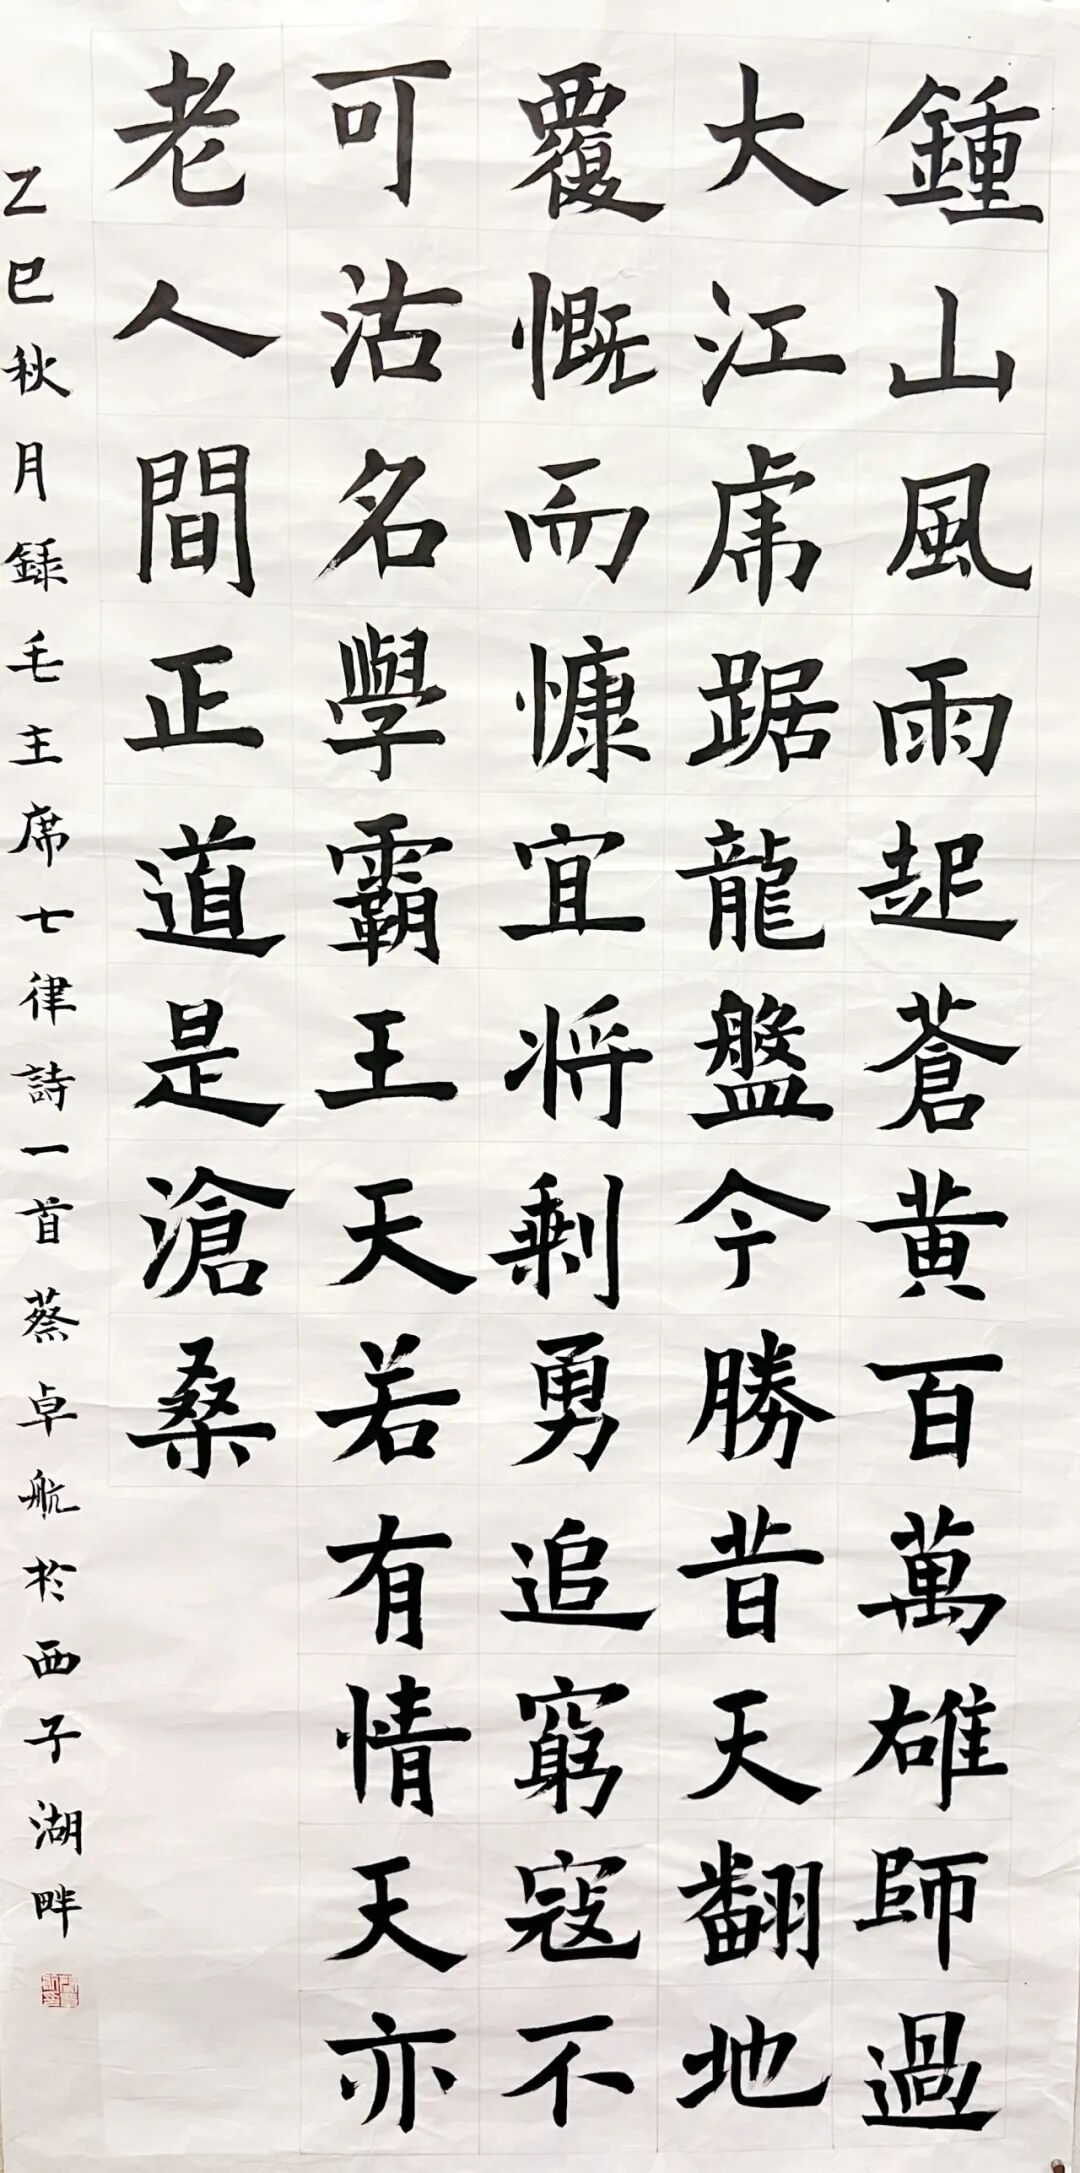 鍾山風雨起蒼黄百萬雄師過
大江虎踞龍盤今勝昔天翻地
覆慨而慷宜将剩勇追窮寇不
可沽名學霸王天若有情天亦
老人間正道是滄桑
乙巳秋月録毛主席七律詩一首蔡卓航於西子湖畔